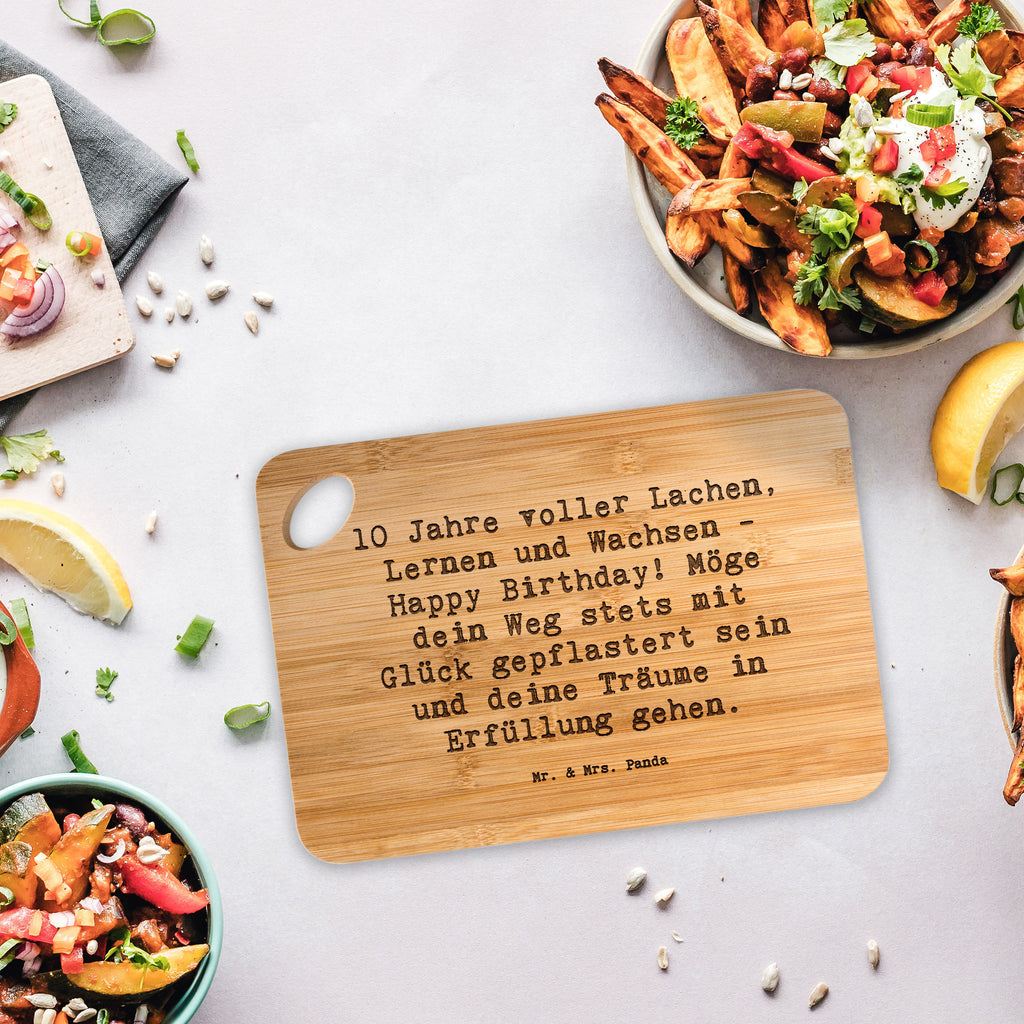 10 Jahre voller Lachen,
Lernen und Wachsen –
Happy Birthday! Möge
dein Weg stets mit
Glück gepflastert sein
und deine Träume in
Erfüllung gehen.
Mr. & Mrs. Panda